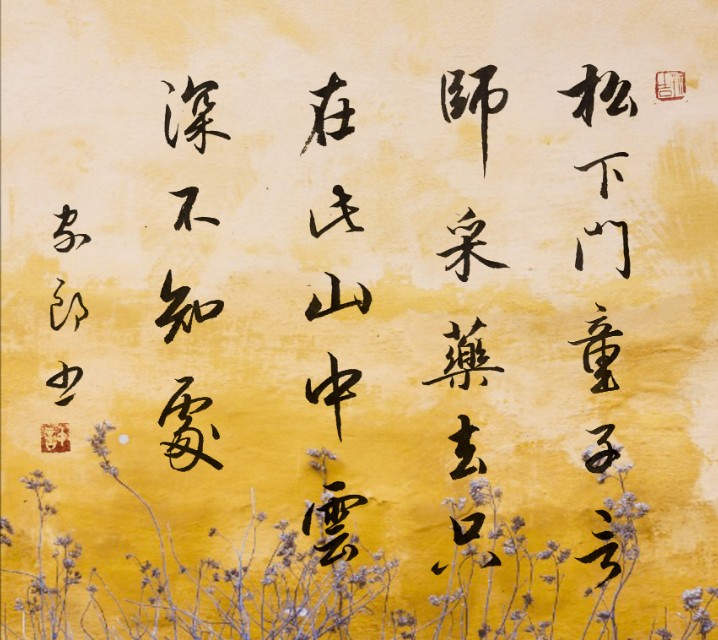 松下門童子言
師采藥去只
在此山中雲
深不知處
家郎书